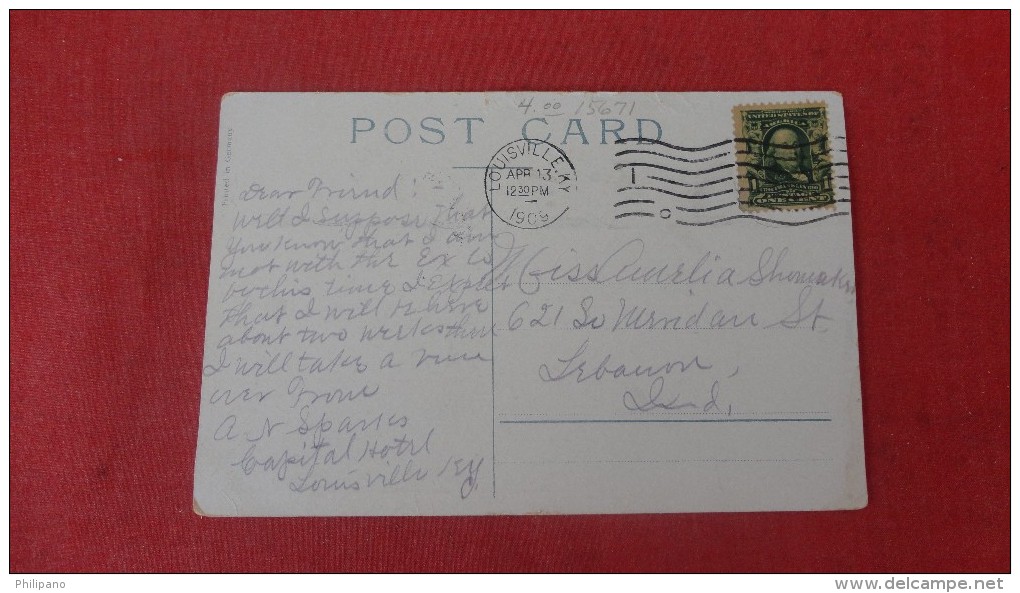 4.00 15671
POST CARD
Printed in Germany
LOUISVILLE, KY
APR 13
12 30 PM
1909
1
C
UNITED STATES OF
AMERICA
ONE CENT
Dear Friend:
Well I Suppose that
You Know that I am
not with the Ex Co
by this time I Expect
that I will be here
about two weeks then
I will take a run
over Home
A N Sparks
Capital Hotel
Louisville Ky.
Miss Amelia Shomaker
621 So Meridian St.
Lebanon,
Ind,
Philipano
www.delcampe.net